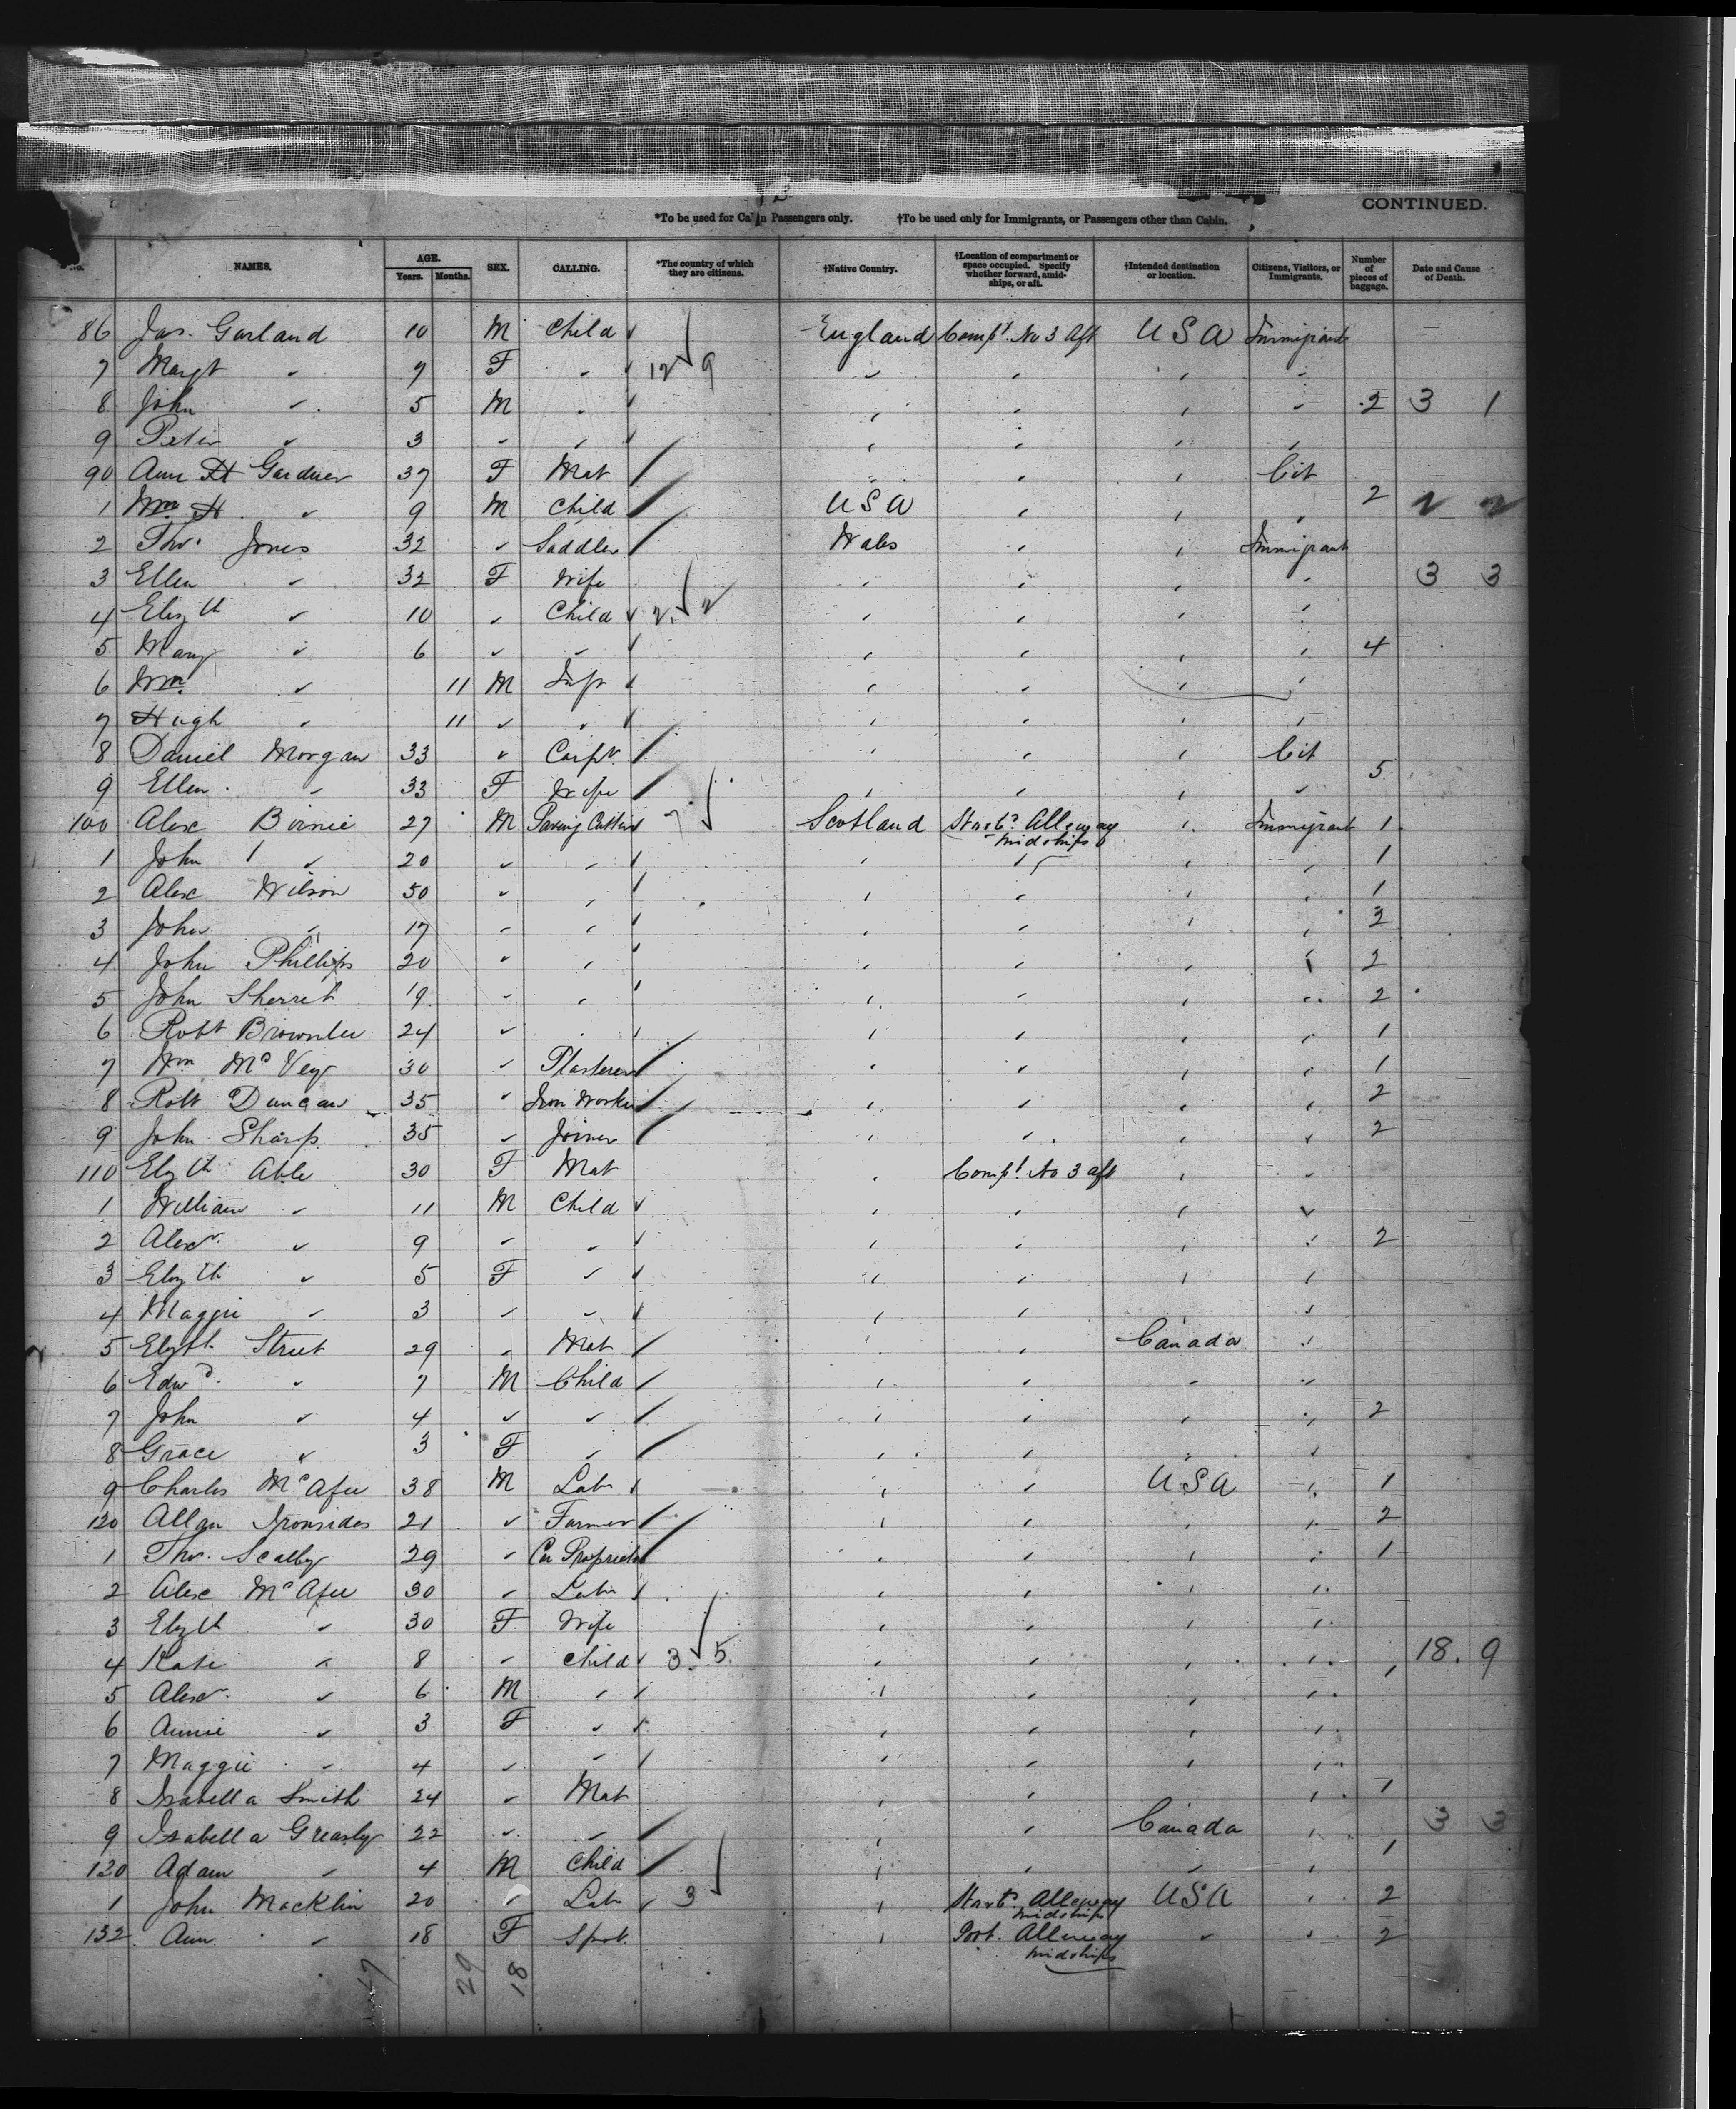 CONTINUED.
*To be used for Cabin Passengers only. †To be used only for Immigrants, or Passengers other than Cabin.
No. NAMES. AGE. Years. Months. SEX. CALLING. *The country of which they are citizens. †Native Country. †Location of compartment or space occupied. Specify whether forward, amidships, or aft. †Intended destination or location. Citizens, Visitors, or Immigrants. Number of pieces of baggage. Date and Cause of Death.
86 Jas. Garland 10 M Child England Compt. No 3 Aft USA Immigrant
7 Margt " 7 F " 12 9 " " " "
8 John " 5 M " " " " " 2 3 1
9 Peter " 3 " " " " " "
90 Ann H Gardner 37 F Mat " " " Cit
1 Wm H " 9 M Child USA " " " 2 2 2
2 Thos. Jones 32 " Saddler Wales " " Immigrant
3 Ellen " 32 F Wife " " " " 3 3
4 Elizth " 10 " Child 2 2 " " " "
5 Mary " 6 " " " " " " 4
6 Wm " 11 M Inft " " " "
7 Hugh " 11 " " " " " "
8 Daniel Morgan 33 " Carpt. " " " Cit
9 Ellen " 33 F Wife " " " " 5
100 Alex Birnie 27 M Paving Cutter 7 Scotland Starbd. Alleway midships " Immigrant 1
1 John " 20 " " " " " " 1
2 Alex Wilson 50 " " " " " " 1
3 John " 17 " " " " " " 3
4 John Phillips 20 " " " " " " 2
5 John Sherret 19 " " " " " " 2
6 Robt Brownlee 24 " " " " " " 1
7 Wm McVey 30 " Plasterer " " " " 1
8 Robt Duncan 35 " Iron Worker " " " " 2
9 John Sharp 35 " Joiner " " " " 2
110 Elizth Able 30 F Mat " Compt. No 3 aft " "
1 William " 11 M Child " " " "
2 Alexr. " 9 " " " " " " 2
3 Elizth " 5 F " " " " "
4 Maggie " 3 " " " " " "
5 Elizth Street 29 " Mat " " Canada "
6 Edwd. " 7 M Child " " " "
7 John " 4 " " " " " " 2
8 Grace " 3 F " " " " "
9 Charles McAfee 38 M Labr " " USA " 1
120 Allan Ironsides 21 " Farmer " " " " 2
1 Thos. Scalby 29 " Car Proprietor " " " " 1
2 Alex McAfee 30 " Labr " " " "
3 Elizth " 30 F Wife " " " "
4 Kate " 8 " Child 3 5 " " " " 1 18. 9
5 Alexr. " 6 M " " " " "
6 Annie " 3 F " " " " "
7 Maggie " 4 " " " " " "
8 Isabella Smith 24 " Mat " " " " 1
9 Isabella Greasly 22 " " " " Canada " 3 3
130 Adam " 4 M Child " " " " 1
1 John Macklin 20 " Labr 3 " Starbd. Alleway midships USA " 2
132 Ann " 18 F Spst. " Port. Alleway midships " " 2
47 29 18